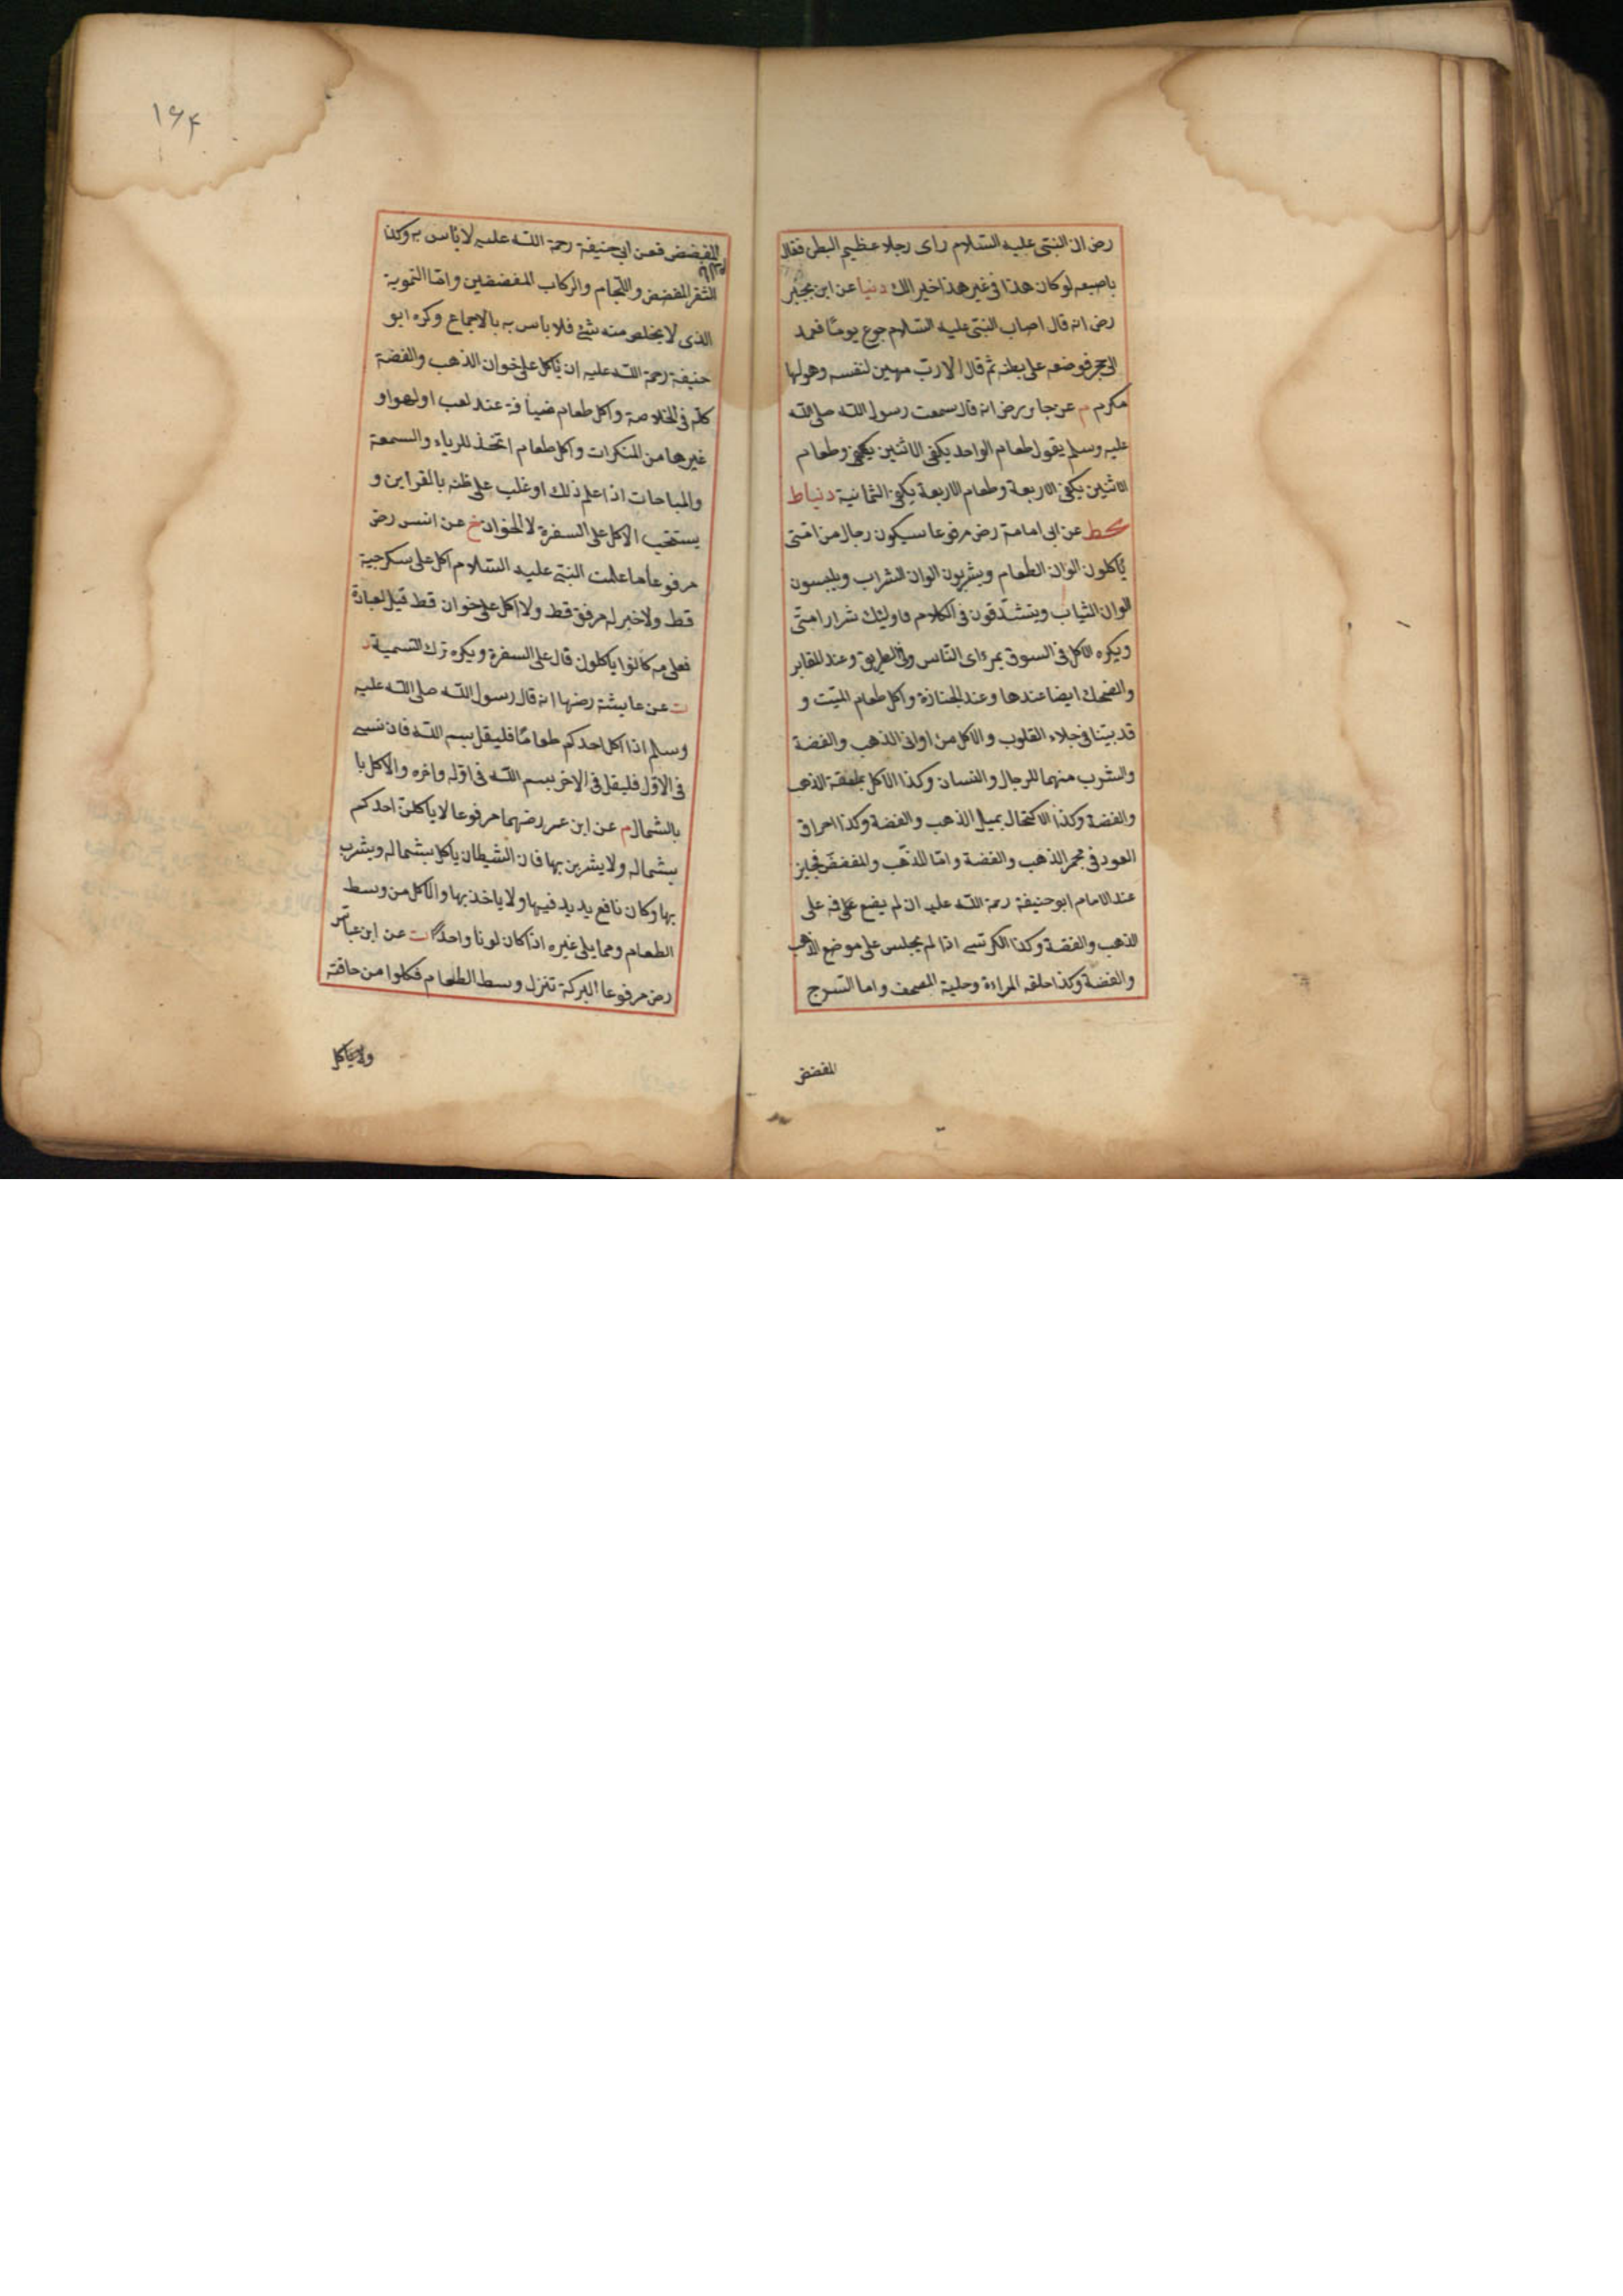 رض ان النبى عليه السلام راى رجلا عظيم البطن فقال
باصبعه لو كان هذا فى غير هذا خيرا لك دنيا عن ابن بجير
رض انه قال اصاب النبى عليه السلام جوع يومًا فعمد
الى حجر فوضعه على بطنه ثم قال الا رب مهين لنفسه وهو لها
مكرم م عن جابر رض انه قال سمعت رسول الله صلى الله
عليه وسلم يقول طعام الواحد يكفى الاثنين يكفى وطعام
الاثنين يكفى الاربعة وطعام الاربعة يكفى الثمانية دنياط
محط عن ابى امامة رض مرفوعا سيكون رجال من امتى
يأكلون الوان الطعام ويشربون الوان الشراب ويلبسون
الوان الثياب ويتشدقون فى الكلام فاولئك شرار امتى
ويكره الاكل فى السوق بمرءاى الناس وفى الطريق وعند المقابر
والضحك ايضا عندها وعند الجنازة واكل طعام الميت و
قد بينا فى جلاء القلوب والاكل من اوانى الذهب والفضة
والشرب منهما للرجال والنسان وكذا الاكل بملعقة الذهب
والفضة وكذا الاكتحال بميل الذهب والفضة وكذا احراق
العود فى مجمر الذهب والفضة واما المذهب والمفضض فجايز
عند الامام ابو حنيفة رحمة الله عليه ان لم يضع على فه على
الذهب والفضة وكذا الكرسى اذا لم يجلس على موضع الذهب
والفضة وكذا حلقه المراءة وحلية المصحف واما السرج
المفضض
١۶۴
المفضض فعن ابى حنيفة رحمة الله عليه لا بأس به وكذا
الثفر المفضض واللجام والركاب المفضضين واما التموية
الذى لا يخلص منه شئ فلا باس به بالاجماع وكره ابو
حنيفة رحمة الله عليه ان يأكل على خوان الذهب والفضة
كله فى الخلاصة واكل طعام ضيافة عند لعب او لهو او
غيرها من المنكرات واكل طعام اتخذ للرياء والسمعة
والمباحات اذا علم ذلك او غلب على ظنه بالقراين و
يستحب الاكل على السفرة لا الخوان خ عن انس رض
مرفوعا ما علمت النبى عليه السلام اكل على سكرجية
قط ولا خبز له مرفق قط ولا اكل على خوان قط قيل لعبادة
فعلى مه كانوا ياكلون قال على السفرة ويكره ترك التسمية د
ت عن عايشة رضها انه قال رسول الله صلى الله عليه
وسلم اذا اكل احدكم طعامًا فليقل بسم الله فان نسى
فى الاول فليقل فى الاخر بسم الله فى اوله واخره والاكل با
بالشمال م عن ابن عمر رضهما مرفوعا لا ياكلن احدكم
بشماله ولا يشربن بها فان الشيطان ياكل بشماله ويشرب
بها وكان نافع يديد فيها ولا ياخذ بها والاكل من وسط
الطعام ومما يلى غيره اذا كان لونا واحدًا ت عن ابن عباس
رض مرفوعا البركة تنزل وسط الطعام فكلوا من حافته
ولا يأكل